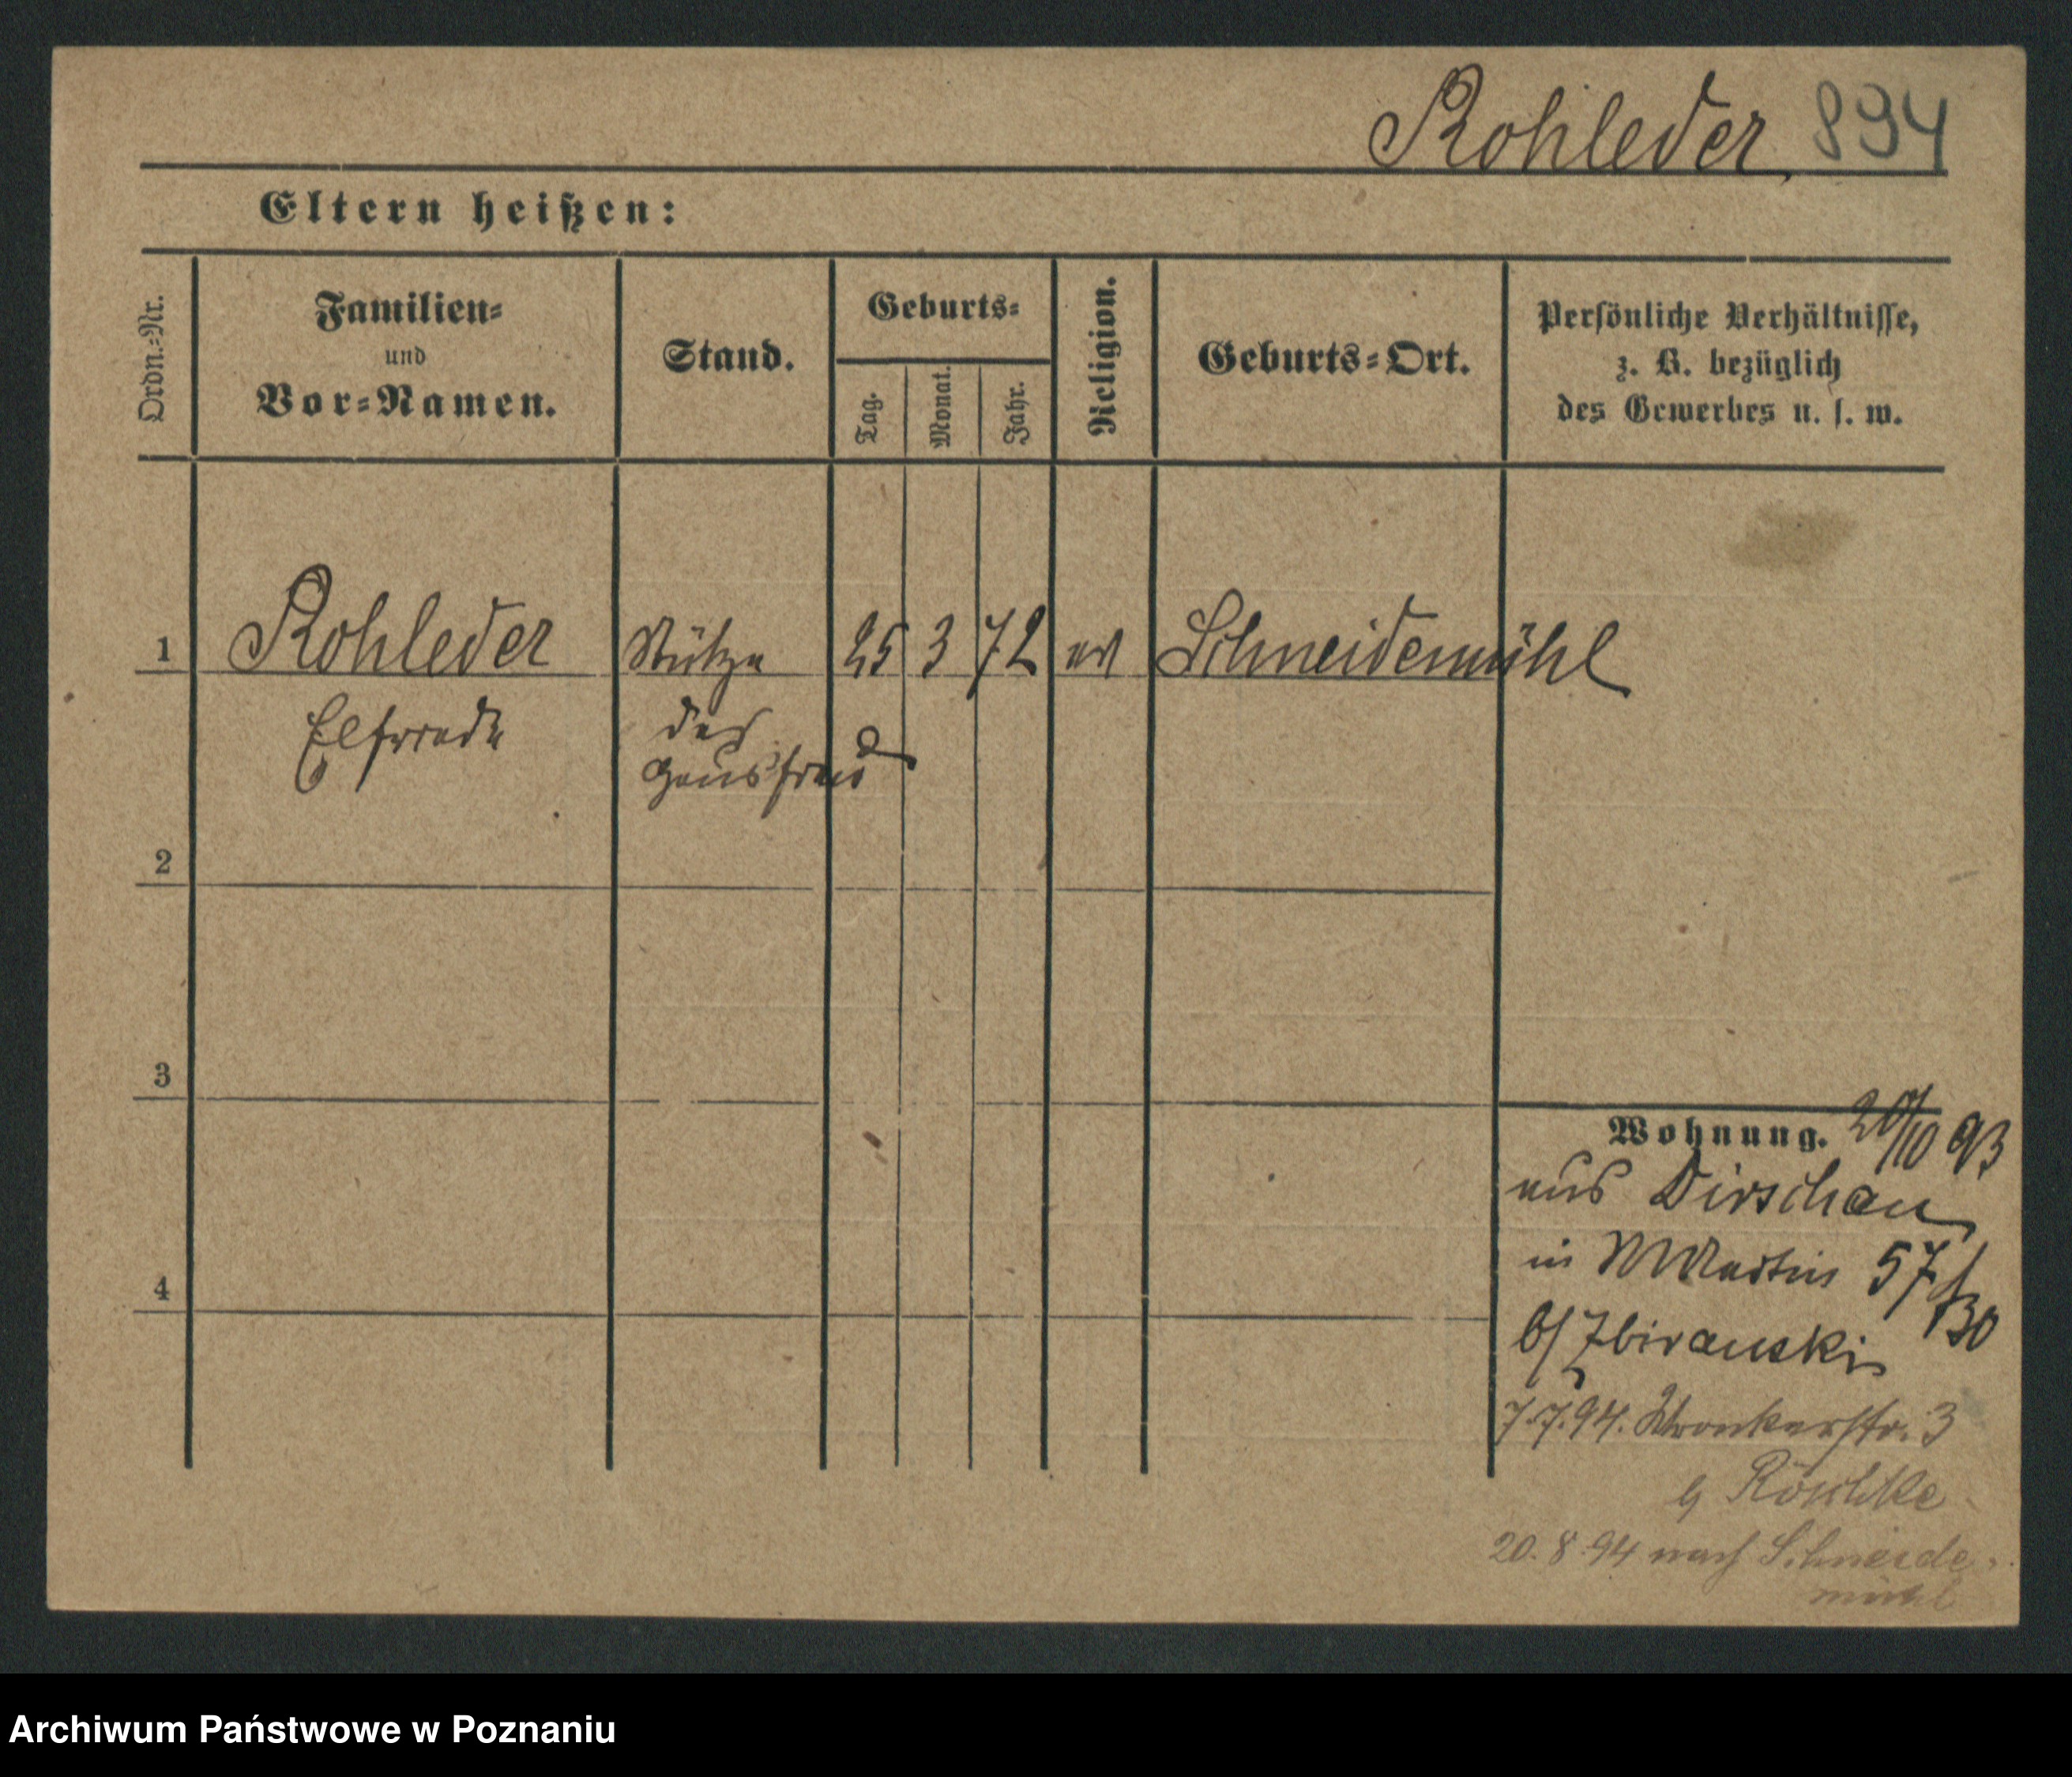 Rohleder 894
Eltern heißen:
Ordn.-Nr.
Familien-
und
Vor-Namen.
Stand.
Geburts-
Tag.
Monat.
Jahr.
Religion.
Geburts-Ort.
Persönliche Verhältnisse,
z. B. bezüglich
des Gewerbes u. s. w.
1 Rohleder Stütze 25 3 72 ev Schneidemühl
Elfriede der
Hausfrau
2
3
4
Wohnung. 20/10 93
aus Dirschau
in Martin 57/
130
b/ Zbiranski
7.7.94. Wronkerstr. 3
b Röschke
20.8.94 nach Schneide-
mühl
Archiwum Państwowe w Poznaniu